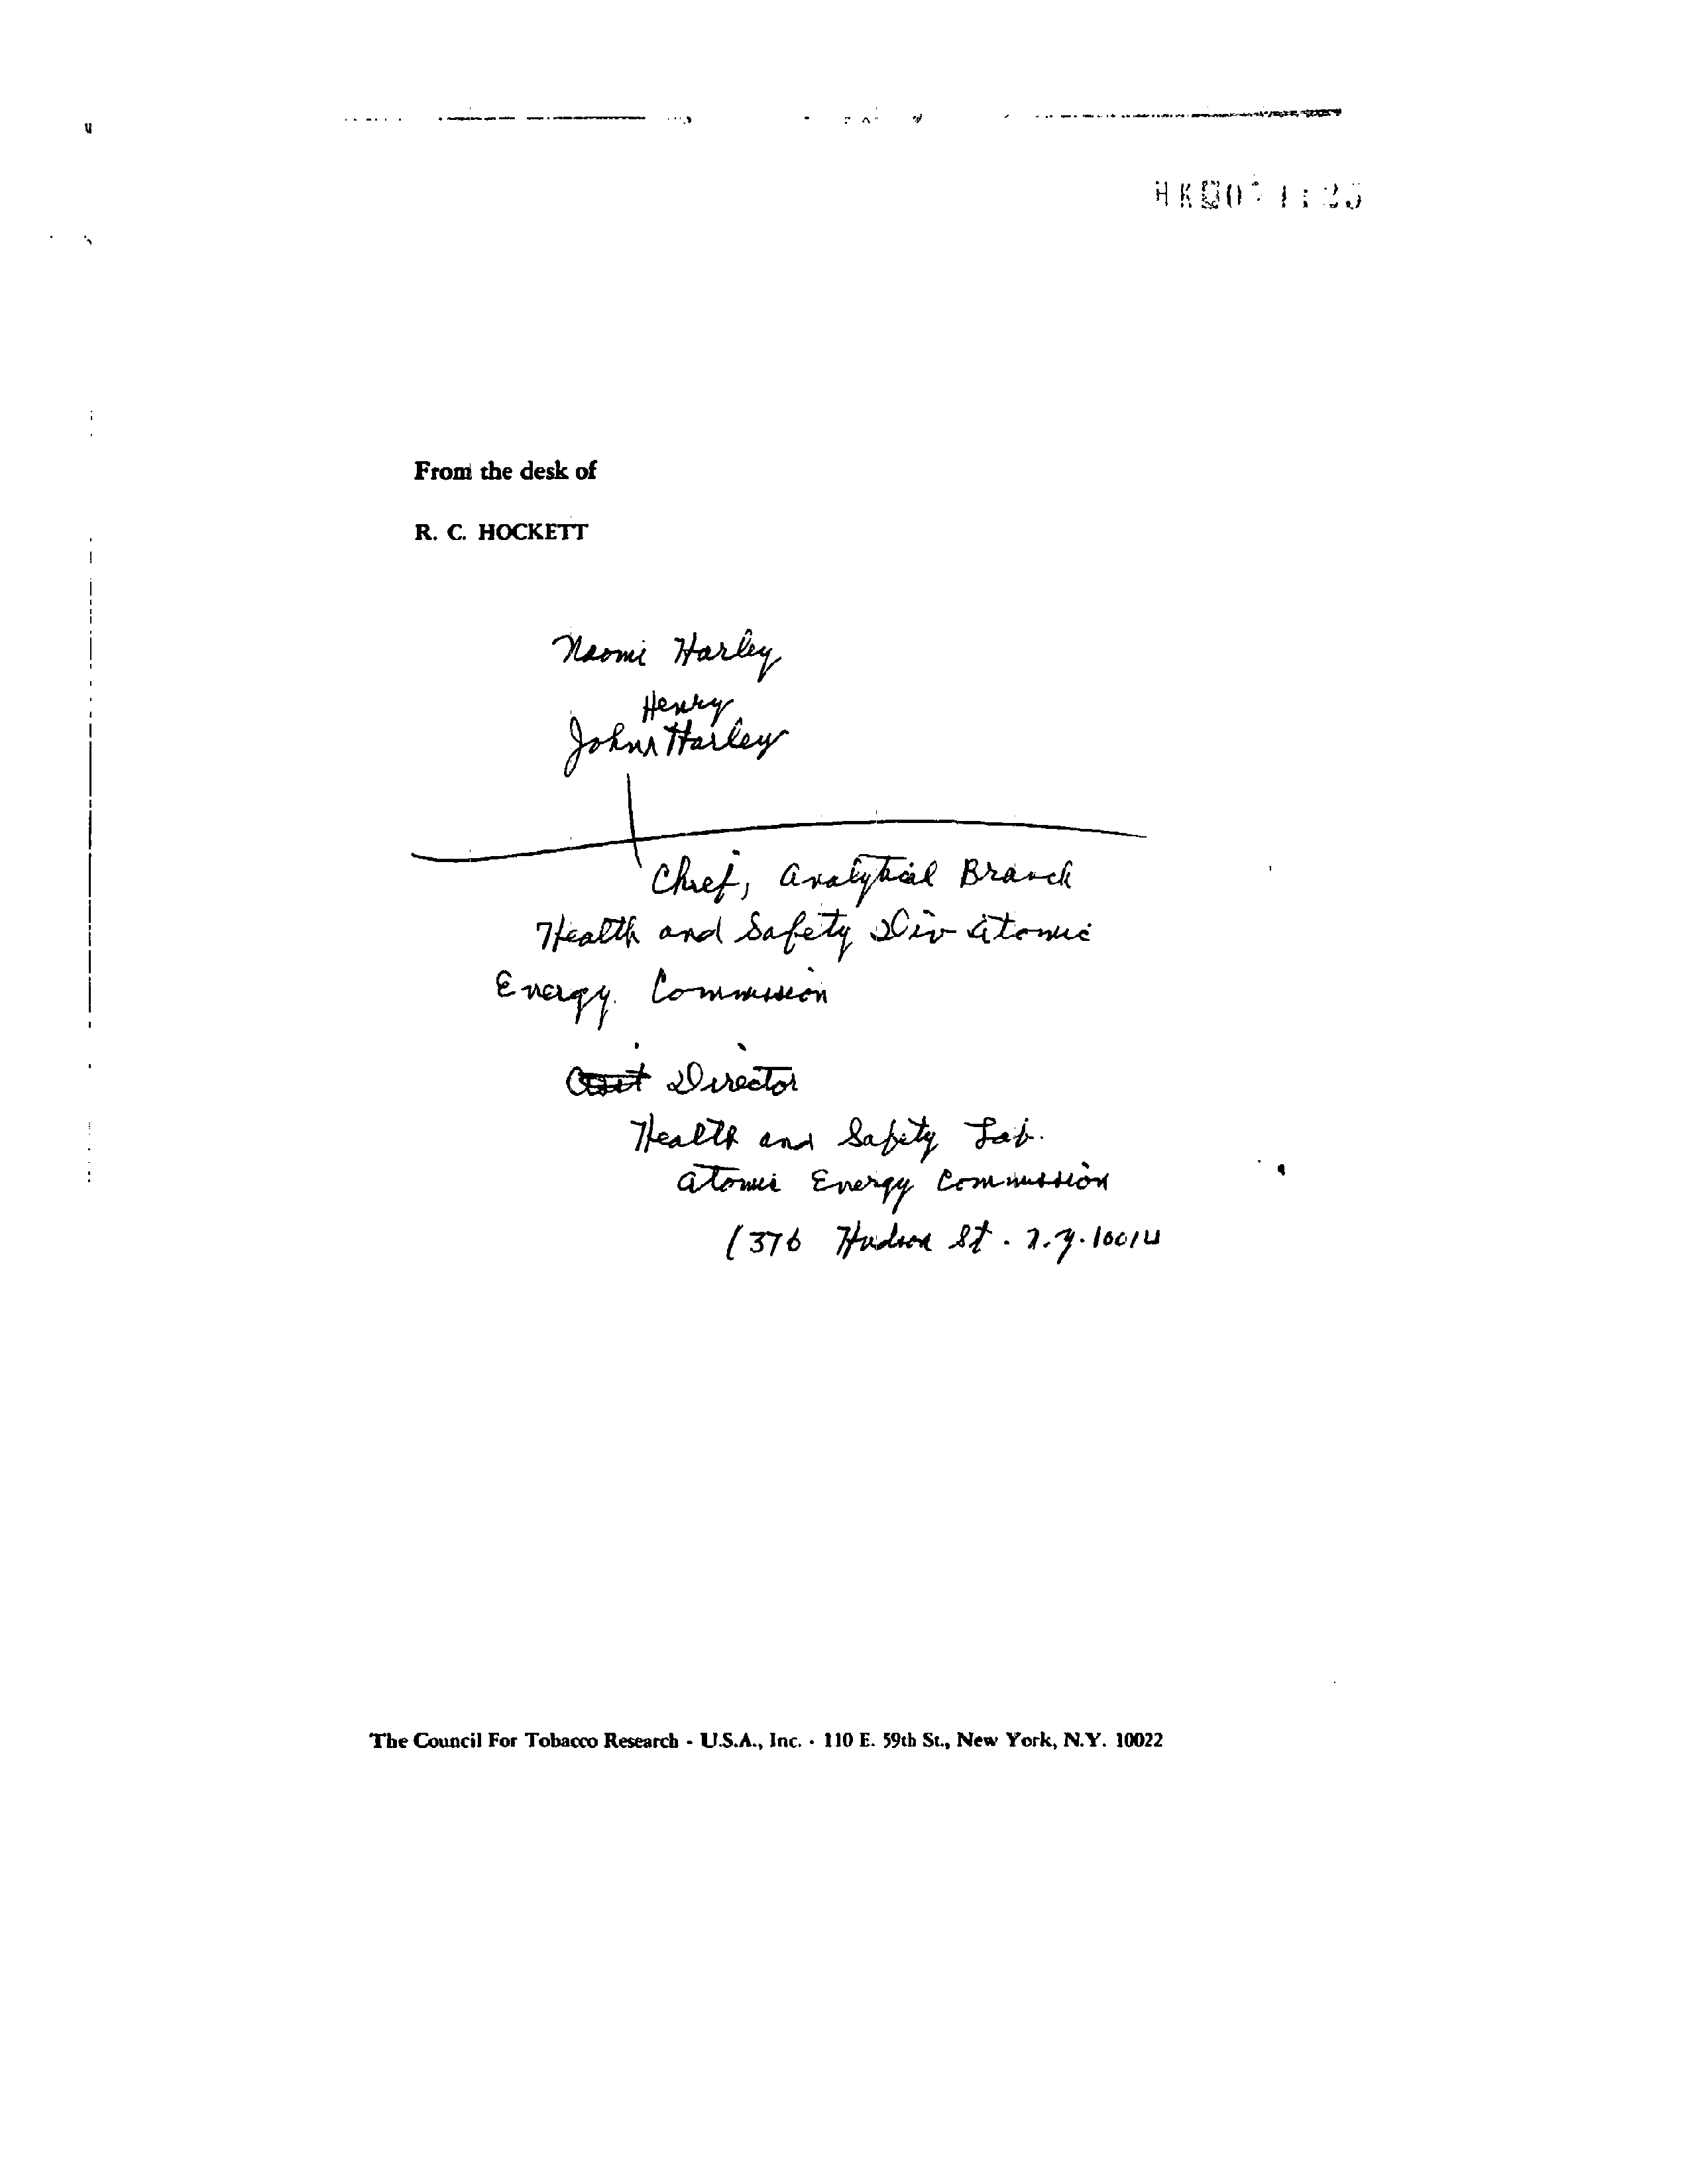 From the desk of
R. C. HOCKETT
Naomi Harley
Henry
John Harley
Chief, Analytical Branch
Health and Safety Div Atomic
Energy Commission
Director
Health and Safety Lab.
Atomic Energy Commission
(376 Hudson St. N.Y. 10014
The Council For Tobacco Research - U.S.A., Inc. · 110 E. 59th St., New York, N.Y. 10022